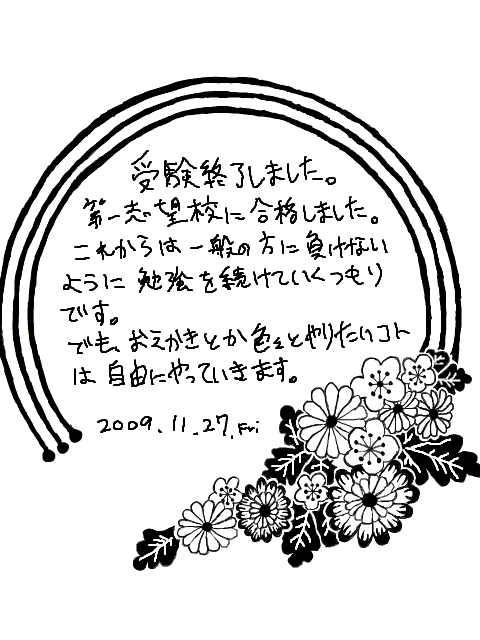 受験終了しました。
第一志望校に合格しました。
これからは一般の方に負けない
ように勉強を続けていくつもり
です。
でも、おえかきとか色々とやりたいコト
は自由にやっていきます。
2009.11.27.Fri